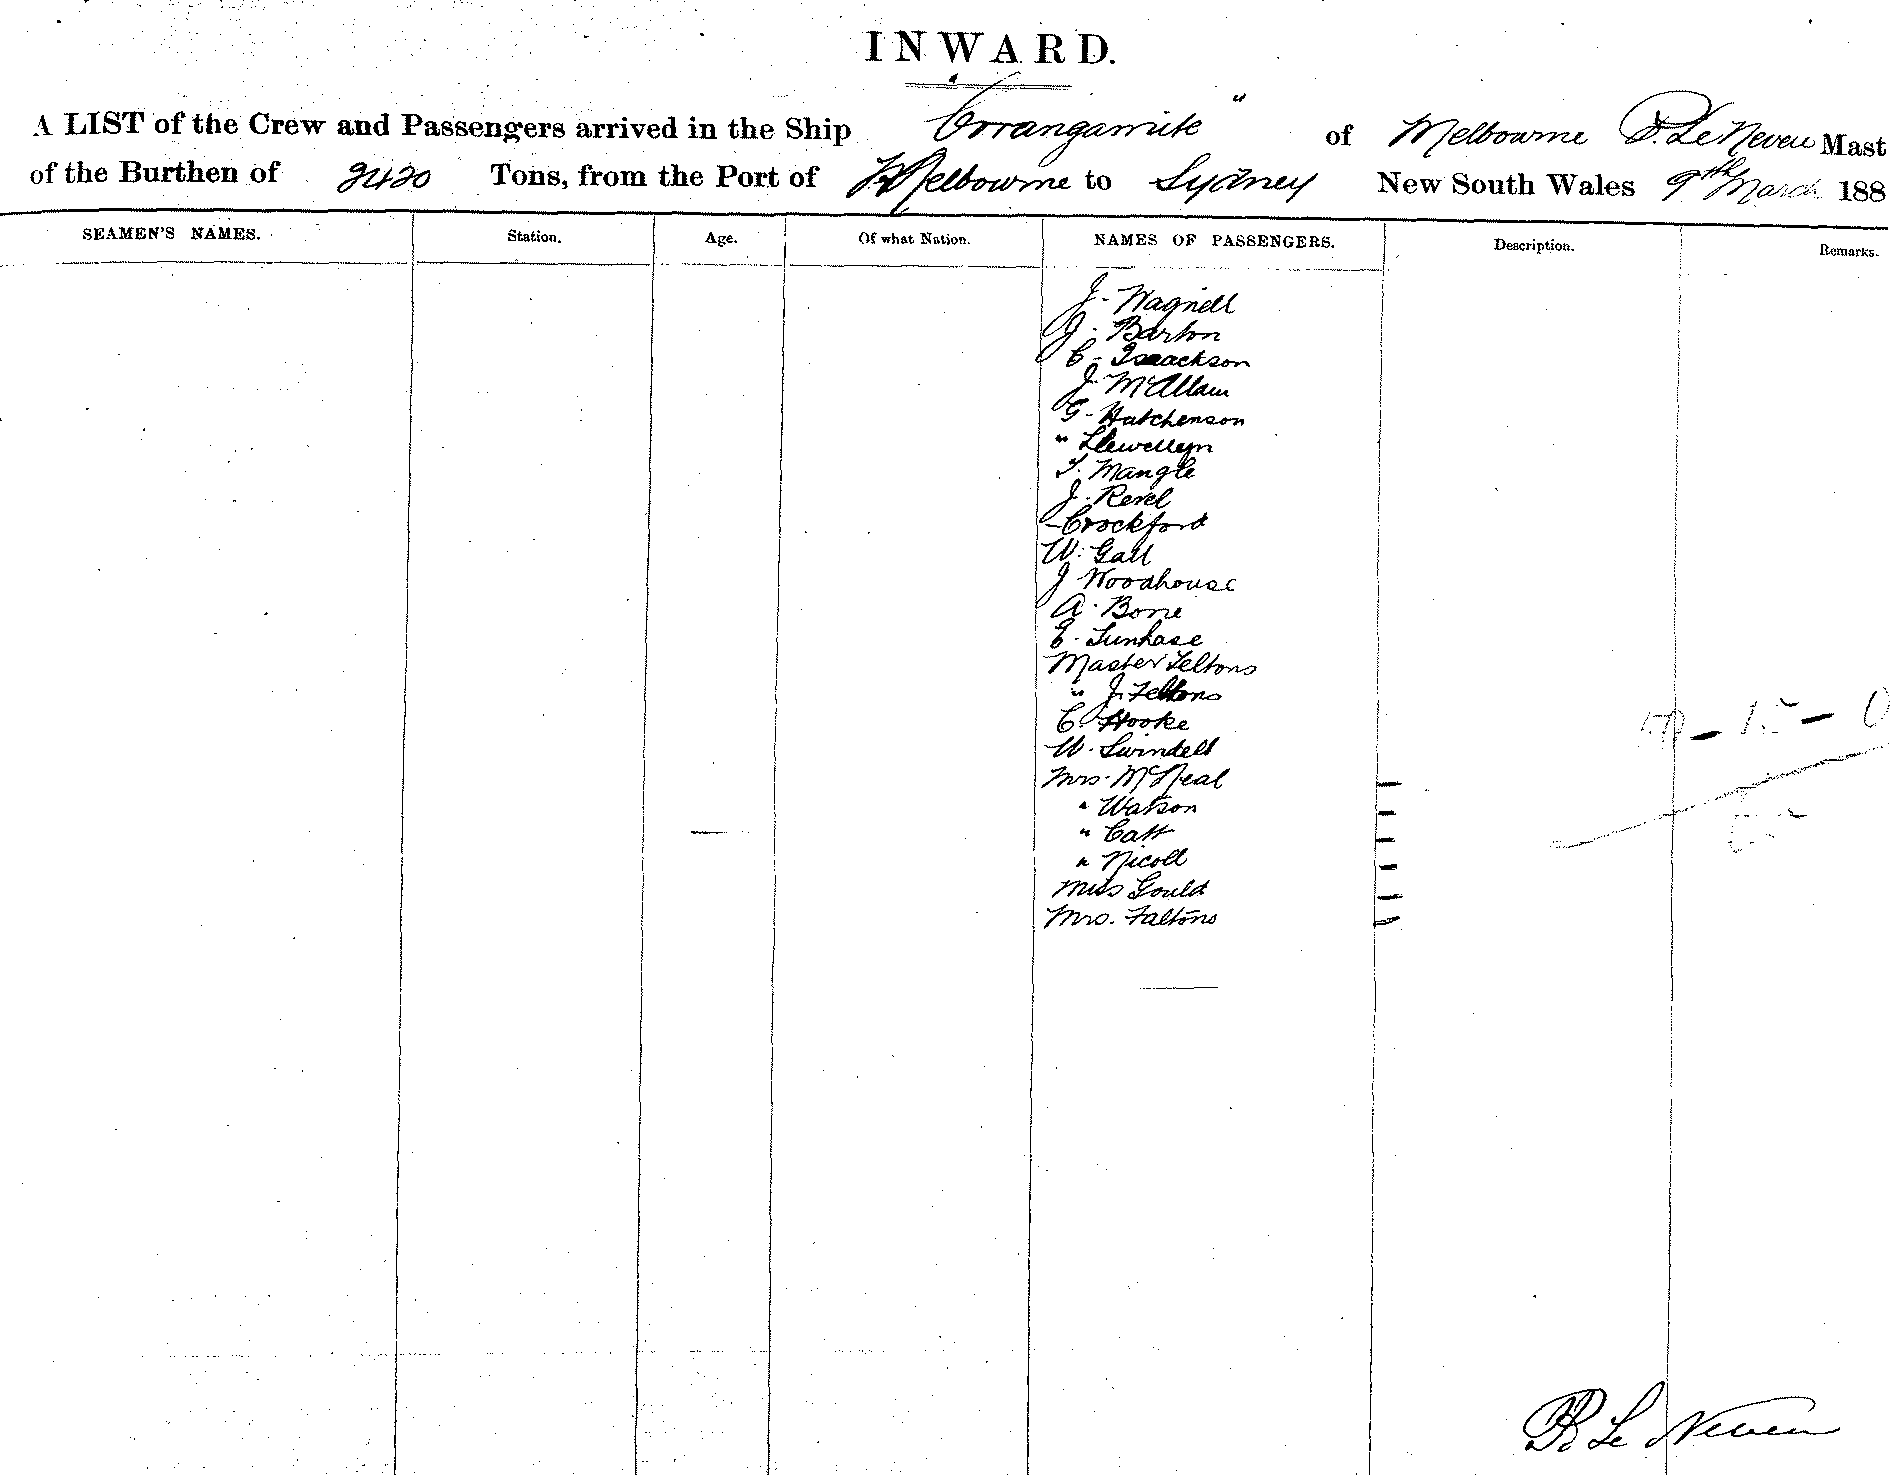 INWARD.
A LIST of the Crew and Passengers arrived in the Ship "Corrangamite" of Melbourne P. Le Neveu Mast
of the Burthen of 2420 Tons, from the Port of Melbourne to Sydney New South Wales 9th March 188
SEAMEN'S NAMES. Station. Age. Of what Nation. NAMES OF PASSENGERS. Description. Remarks.
J. Wagnell
J. Barton
C. Isaackson
J McAllam
G. Hutchenson
" Llewellyn
T. Mangle
J. Revel
- Crockford
W. Gall
J Woodhouse
A. Bone
E.
Master Feltons
" J. Feltons
C. Hooke
W. Swindell
Mrs. McNeal
" Watson
" Catt
" Nicoll
Miss Gould
Mrs. Faltons
- 15 - 0
Le Neveu